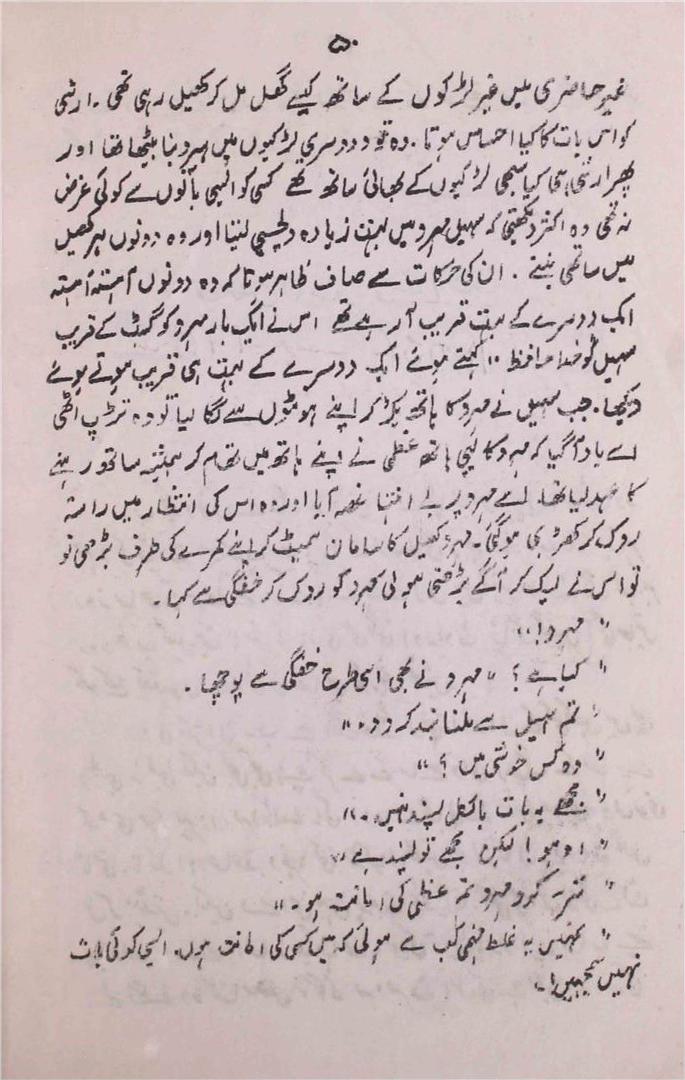 ۵۰
غیر حاضری میں غیر لڑکوں کے ساتھ کیسے گھل مل کر کھیل رہی تھی ۔ ارشی
کو اس بات کا کیا احساس ہوتا ۔ وہ تو دوسری لڑکیوں میں ہیرو بنا بیٹھا تھا اور
پھر ارشی ہی کیا سبھی لڑکیوں کے بھائی ساتھ تھے کسی کو ایسی باتوں سے کوئی غرض
نہ تھی وہ اکثر دیکھتی کہ سہیل مہرو میں بہت زیادہ دلچسپی لیتا اور وہ دونوں ہر کھیل
میں ساتھی بنتے ۔ ان کی حرکات سے صاف ظاہر ہوتا کہ وہ دونوں آہستہ آہستہ
ایک دوسرے کے بہت قریب آ رہے تھے اس نے ایک بار مہرو کو گیٹ کے قریب
سہیل کو خدا حافظ ،، کہتے ہوئے ایک دوسرے کے بہت ہی قریب ہوتے ہوئے
دیکھا ۔ جب سہیل نے مہرو کا ہاتھ پکڑ کر اپنے ہونٹوں سے لگا لیا تو وہ تڑپ اٹھی
اسے یاد آ گیا کہ مہرو کا یہی ہاتھ عظمی نے اپنے ہاتھ میں تھام کر ہمیشہ ساتھ رہنے
کا عہد لیا تھا ۔ اسے مہرو پر بے انتہا غصہ آیا اور وہ اس کی انتظار میں راستہ
روک کر کھڑی ہو گئی ۔ مہرو کھیل کا سامان سمیٹ کر اپنے کمرے کی طرف بڑھی تو
تو اس نے لپک کر آگے بڑھتی ہوئی مہرو کو روک کر خفگی سے کہا ۔
" مہرو ! ،،
" کیا ہے ؟ ،، مہرو نے بھی اسی طرح خفگی سے پوچھا ۔
" تم سہیل سے ملنا بند کر دو ۔ ،،
" وہ کس خوشی میں ؟ ،،
" مجھے یہ بات بالکل پسند نہیں ۔ ،،
" اوہو ! لیکن مجھے تو پسند ہے ،،
" کرو مہرو تم عظمی کی امانت ہو ۔ ،،
" تمہیں یہ غلط فہمی کب سے ہوئی کہ میں کسی کی امانت ہوں ۔ ایسی کوئی بات
نہیں سمجھیں ! ۔